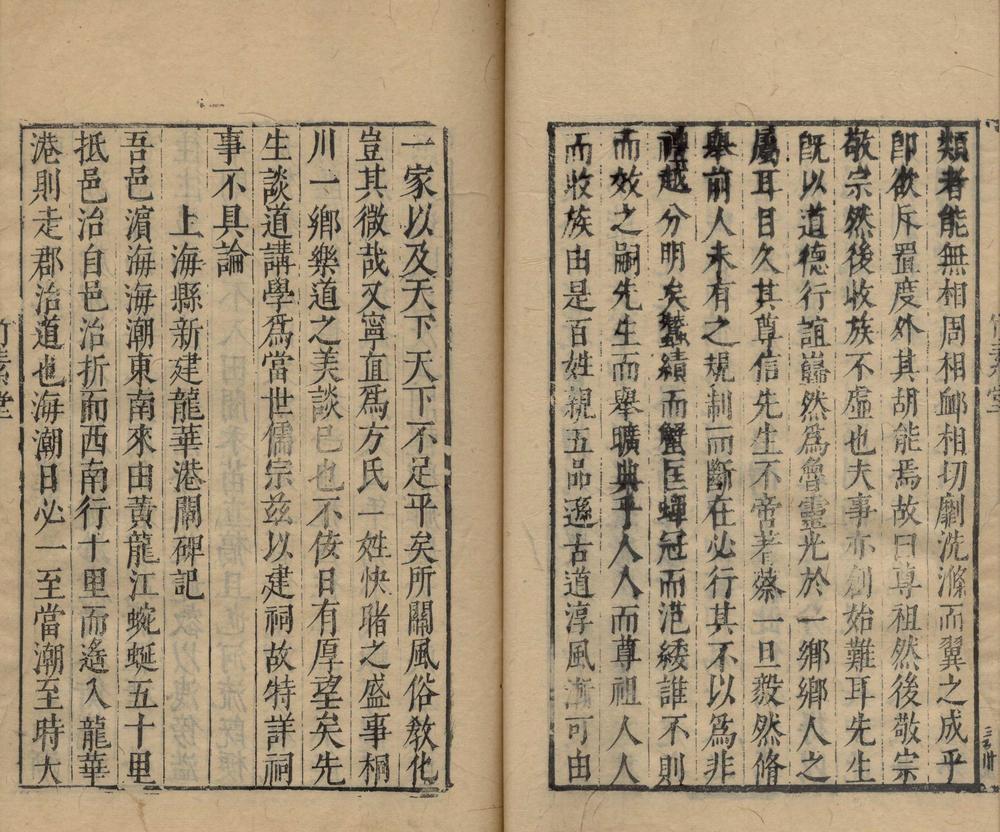 類者能無相周相卹相切劘洗滌而翼之成乎
卽欲斥置度外其胡能焉故曰尊祖然後敬宗
敬宗然後收族不虛也夫事亦創始難耳先生
旣以道德行誼巋然爲魯靈光於一鄉鄉人之
屬耳目久其尊信先生不啻蓍蔡一旦毅然脩
舉前人未有之規制而斷在必行其不以爲非
禮越分明矣蠶績而蟹匡蟬冠而范緌誰不則
而效之嗣先生而舉曠典乎人人而尊祖人人
而收族由是百姓親五品遜古道淳風漸可由
一家以及天下天下不足平矣所關風俗敎化
豈其微哉又寧直爲方氏一姓快睹之盛事桐
川一鄉樂道之美談已也不佞日有厚望矣先
生談道講學爲當世儒宗兹以建祠故特詳祠
事不具論
上海縣新建龍華港閘碑記
吾邑濵海海潮東南來由黃龍江蜿蜒五十里
抵邑治自邑治折而西南行十里而遙入龍華
港則走郡治道也海潮日必一至當潮至時大
竹素堂